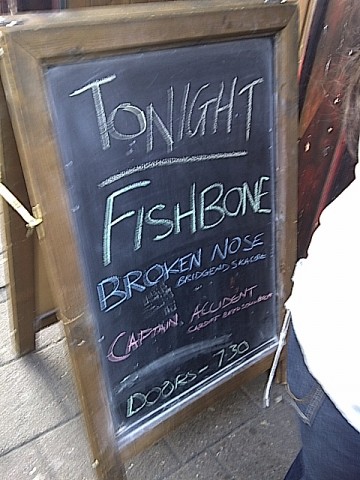 TONIGHT
FISHBONE
BROKEN NOSE
BRIDGEND SKACORE
CAPTAIN ACCIDENT
CARDIFF
DOORS - 7.30